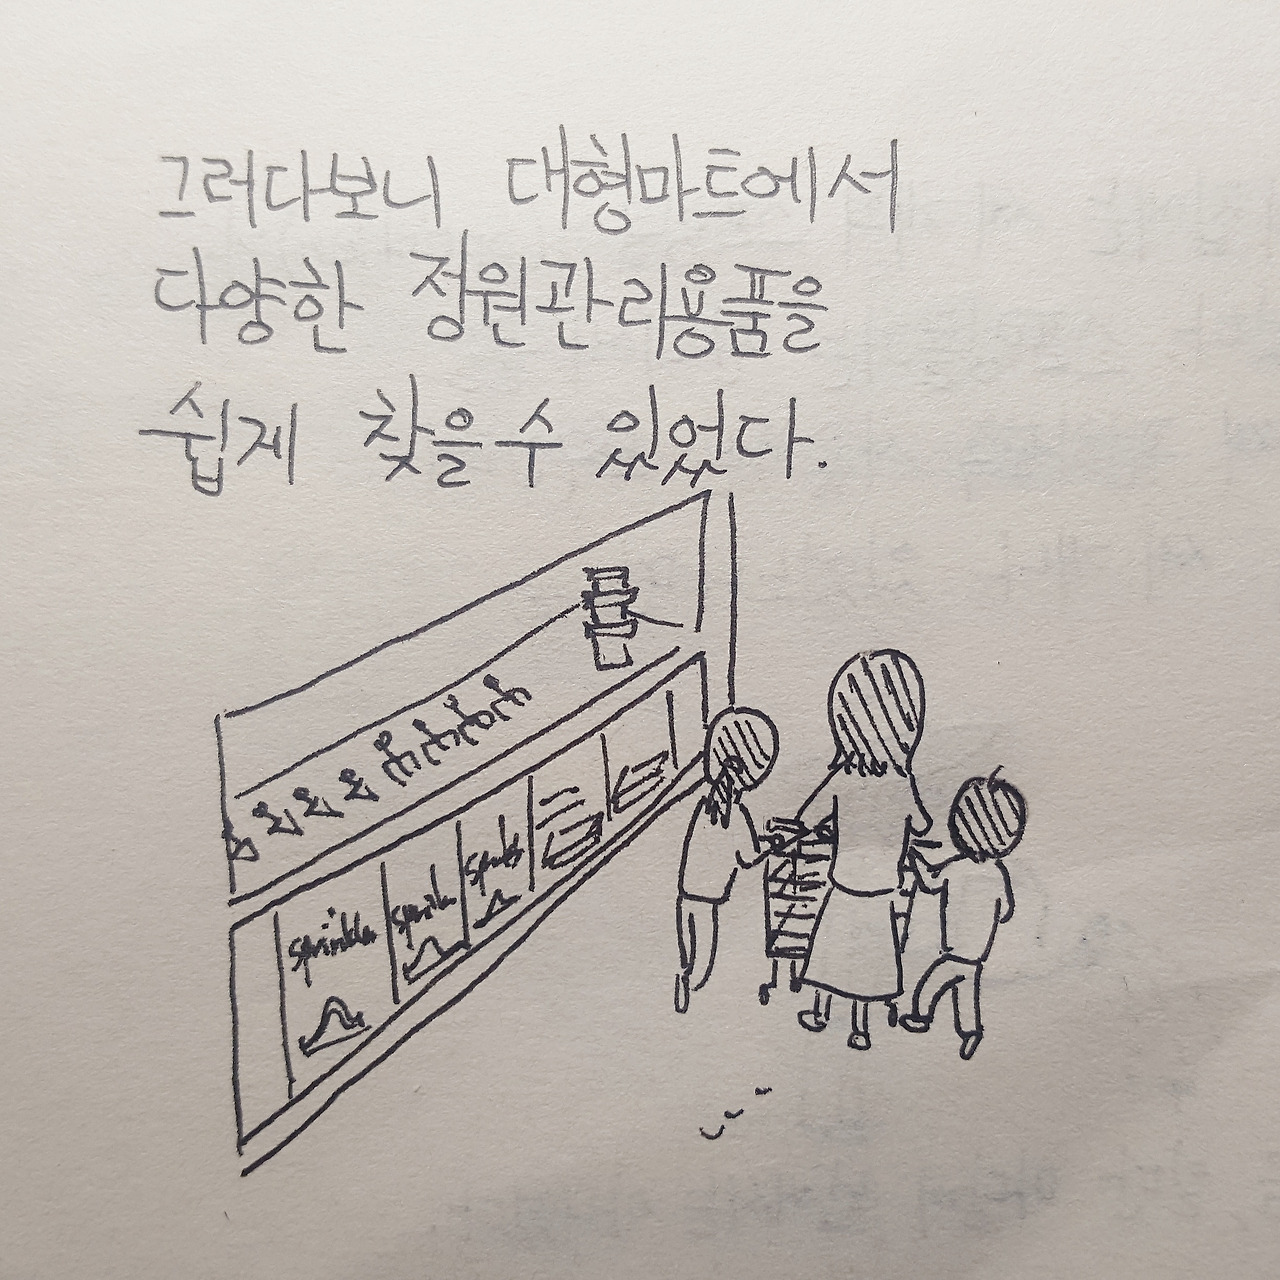 그러다보니 대형마트에서
다양한 정원관리용품을
쉽게 찾을수 있었다.
sprinkler